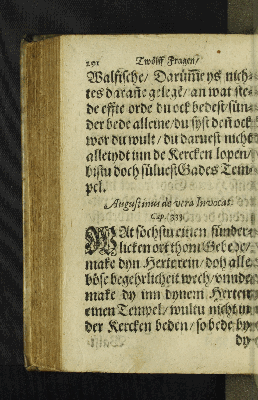 291 Twölff Fragen/
Walfische/ Darūm̄e ys nich-
tes darane gelegē/ an wat ste-
de effte orde du ock bedest/ sün-
der bede alleine/ du syst den̄ ock
wor du wult/ du daruest nicht
alletydt inn de Kercken lopen/
bistu doch süluest Gades Tem-
pel.
Augustinus de vera Invocat.
Cap. (33)
WAt söchstu einen sünder-
licken ort thom Gebede/
make dyn Herte rein/ doh alle
böse begehrlicheit wech/ vnnde
make dy inn dynem Herten
einen Tempel/ wultu nicht in
der Kercken beden/ so bede by
dy